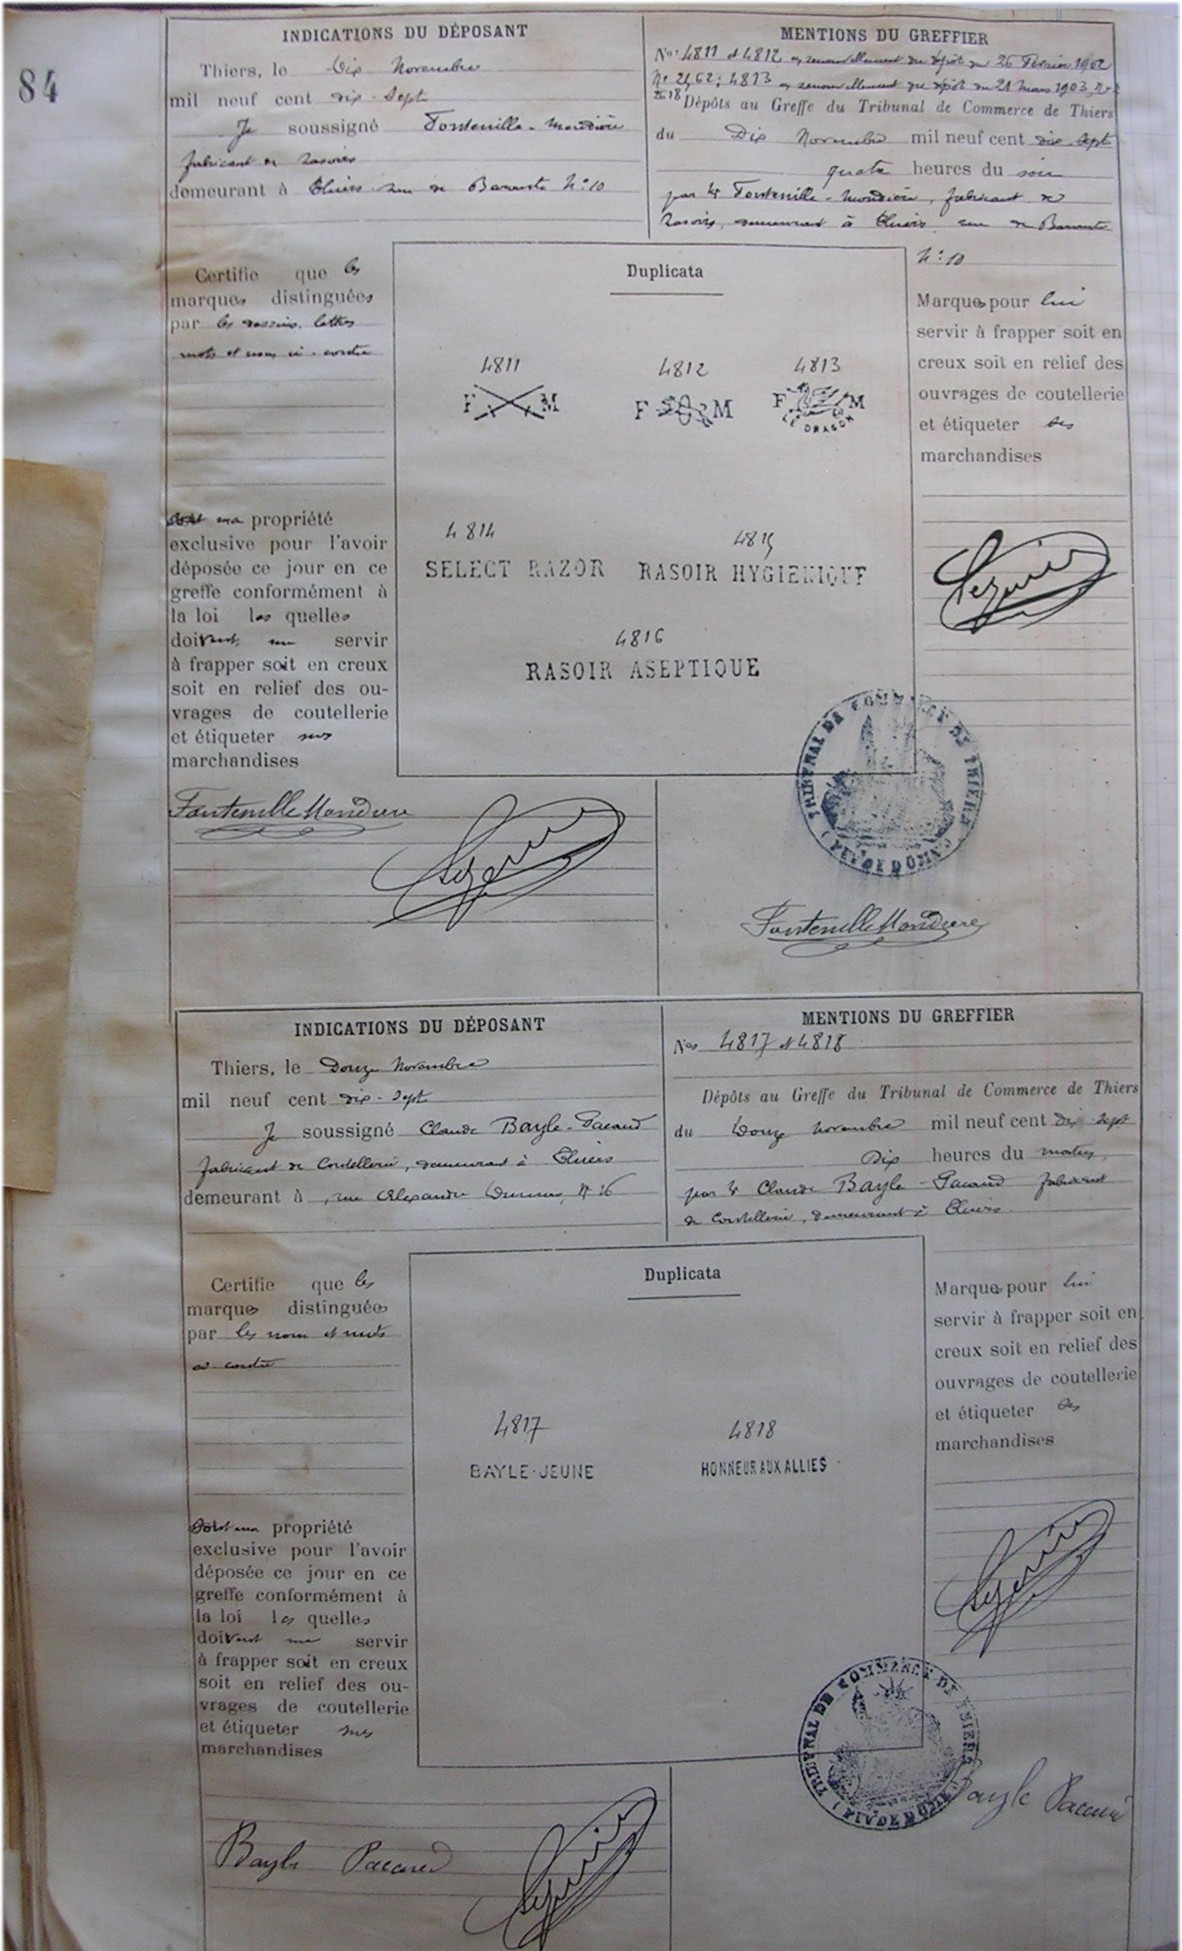 84
INDICATIONS DU DÉPOSANT
Thiers, le Dix Novembre
mil neuf cent dix-Sept
Je soussigné Fontenille-Mondière
fabricant de rasoirs
demeurant à Thiers rue de Barante N° 10
MENTIONS DU GREFFIER
Nos 4811 et 4812 en renouvellement du dépôt du 26 Février 1902
4813 en renouvellement du dépôt du 21 Mars 1903
Dépôts au Greffe du Tribunal de Commerce de Thiers
du Dix Novembre mil neuf cent dix Sept
quatre heures du soir
par Mr Fontenille-Mondière, fabricant de
rasoirs, demeurant à Thiers, rue de Barante
N° 10
Certifie que les
marques distinguées
par les dessins, lettres
mots et noms ci-contre
Sont ma propriété
exclusive pour l'avoir
déposée ce jour en ce
greffe conformément à
la loi lesquelles
doivent me servir
à frapper soit en creux
soit en relief des ou-
vrages de coutellerie
et étiqueter mes
marchandises
Duplicata
4811 4812 4813
F M F M F M
LE DRAGON
4814 4815
SELECT RAZOR RASOIR HYGIENIQUE
4816
RASOIR ASEPTIQUE
Marques pour lui
servir à frapper soit en
creux soit en relief des
ouvrages de coutellerie
et étiqueter ses
marchandises
TRIBUNAL DE COMMERCE DE THIERS
(PUY DE DOME)
Fontenille Mondiere
Fontenille Mondiere
INDICATIONS DU DÉPOSANT
Thiers, le Douze Novembre
mil neuf cent dix-Sept
Je soussigné Claude Bayle-Pacaud
fabricant de Coutellerie, demeurant à Thiers
demeurant à , rue Alexandre Dumas, N° 16
MENTIONS DU GREFFIER
Nos 4817 et 4818
Dépôts au Greffe du Tribunal de Commerce de Thiers
du Douze Novembre mil neuf cent Dix-Sept
Dix heures du matin,
par Mr Claude Bayle-Pacaud fabricant
de Coutellerie, demeurant à Thiers.
Certifie que les
marques distinguées
par les nom et mots
ci-contre
Sont ma propriété
exclusive pour l'avoir
déposée ce jour en ce
greffe conformément à
la loi lesquelles
doivent me servir
à frapper soit en creux
soit en relief des ou-
vrages de coutellerie
et étiqueter mes
marchandises
Duplicata
4817 4818
BAYLE-JEUNE HONNEUR AUX ALLIES
Marques pour lui
servir à frapper soit en
creux soit en relief des
ouvrages de coutellerie
et étiqueter ses
marchandises
TRIBUNAL DE COMMERCE DE THIERS
(PUY DE DOME)
Bayle Pacaud
Bayle Pacaud